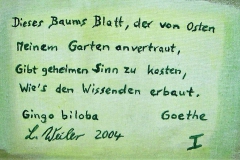 Dieses Baums Blatt, der von Osten
Meinem Garten anvertraut,
Gibt geheimen Sinn zu kosten,
Wie's den Wissenden erbaut.
Gingo biloba Goethe
L. Weiler 2004
I